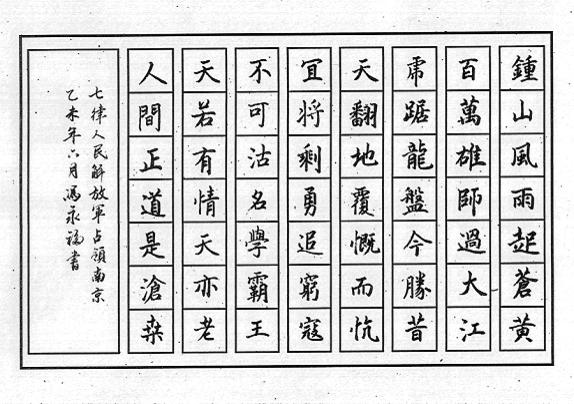 鍾山風雨起蒼黃
百萬雄師過大江
虎踞龍盤今勝昔
天翻地覆慨而忼
宜将剩勇追窮寇
不可沽名學霸王
天若有情天亦老
人間正道是滄桒
七律人民解放軍占領南京
乙未年六月馮永福書